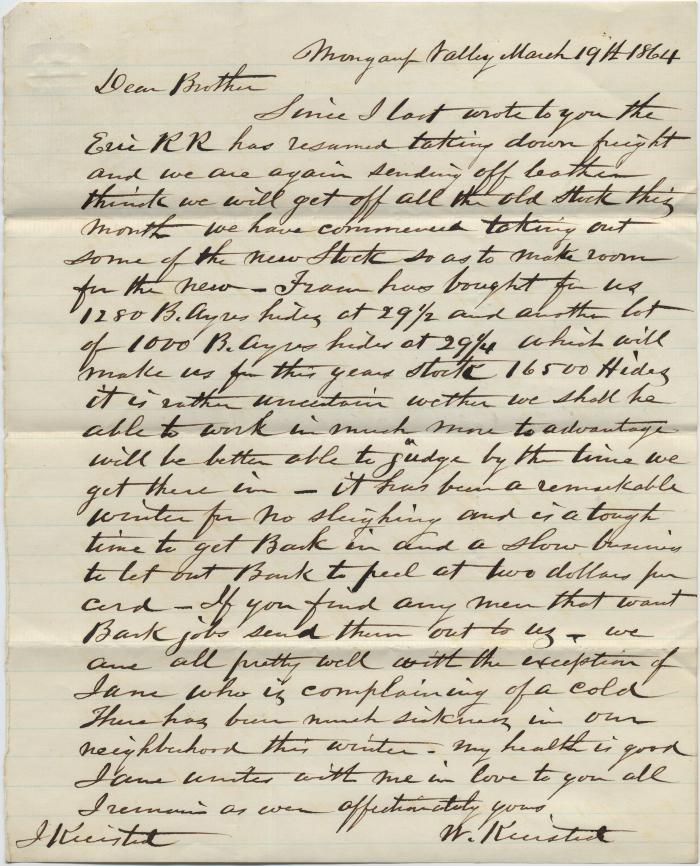 Mongaup Valley March 19th 1864
Dear Brother
Since I last wrote to you the
Erie RR has resumed taking down freight
and we are again sending off leather
think we will get off all the old stock this
month we have commenced taking out
some of the new Stock so as to make room
for the new - Fraser has bought for us
1280 B. Ayres hides at 29 1/2 and another lot
of 1000 B. Ayres hides at 29 1/4 which will
make us for this years stock 16500 Hides
it is rather uncertain wether we shall be
able to work in much more to advantage
will be better able to judge by the time we
get these in - it has been a remarkable
winter for no sleighing and is a tough
time to get Bark in and a slow business
to let out Bark to peel at two dollars per
cord - If you find any men that want
Bark jobs send them out to us - we
are all pretty well with the exception of
Jane who is complaining of a cold
There has been much sickness in our
neighborhood this winter - my health is good
Jane unites with me in love to you all
I remain as ever affectionately yours
J Kiersted W. Kiersted